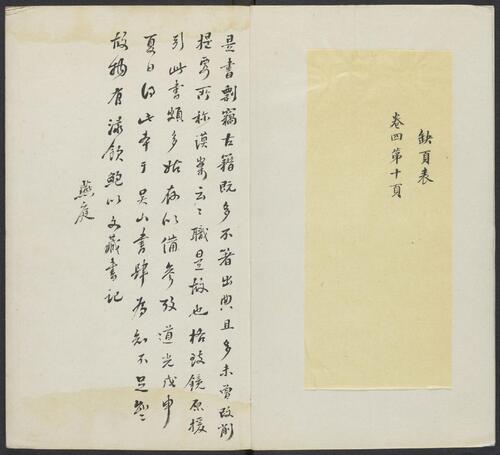 缺頁表
卷四第十頁
是書剽竊古籍既多不箸出典且多未曾改削
提要所称謨案云〻職是故也格致鏡原援
引此書頗多姑存以備參攷道光戊申
夏日得此本于吳山書肆為知不足齋
故物有淥飲鮑以文藏書記
燕庭